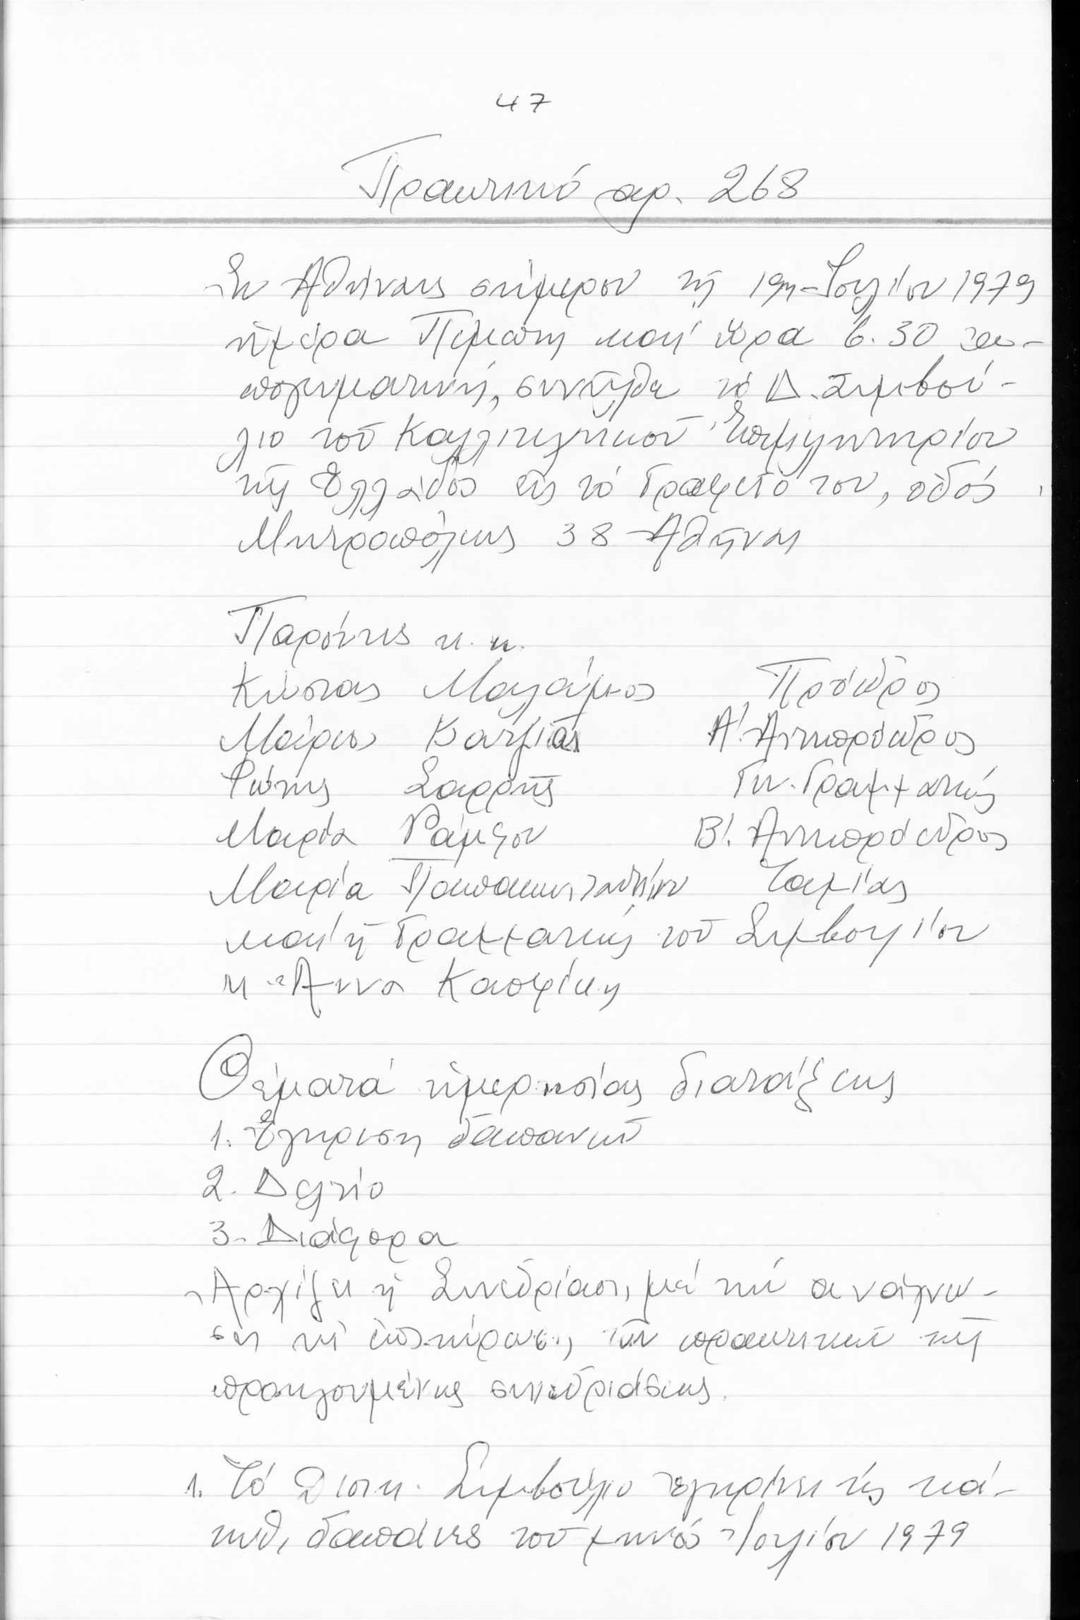 47
Πρακτικό αρ. 268
Ἐν Ἀθήναις σήμερον τῇ 19η Ἰουλίου 1979
ἡμέρα Πέμπτη καί ὥρα 6.30 απο-
απογευματινή, συνῆλθε τό Δ. Συμβού-
λιο τοῦ Καλλιτεχνικοῦ Ἐπιμελητηρίου
τῆς Ἑλλάδος εἰς τό Γραφεῖο του, οδός
Μητροπόλεως 38 Ἀθῆναι
Παρόντες κ.κ.
Κώστας Μαλάμος Πρόεδρος
Μάριος Βατζιᾶς Α'. Ἀντιπρόεδρος
Φώτης Σαρρῆς Γεν. Γραμματεύς
Μαρία Ράμφου Β'. Ἀντιπρόεδρος
Μαρία Ταμίας
καί ἡ Γραμματεύς τοῦ Συμβουλίου
κ. Ἄννα Κασφίκη
Θέματα ἡμερησίας διατάξεως
1. Ἔγκριση δαπανῶν
2. Δελτίο
3. Διάφορα
Ἀρχίζει ἡ Συνεδρίαση, μέ τήν ανάγνω-
ση καί ἐπικύρωση, τῶν πρακτικῶν τῆς
προηγουμένης συνεδριάσεως.
1. Τό Διοικ. Συμβούλιο ἐγκρίνει τίς κά-
τωθι, δαπάνες τοῦ μηνός Ἰουλίου 1979